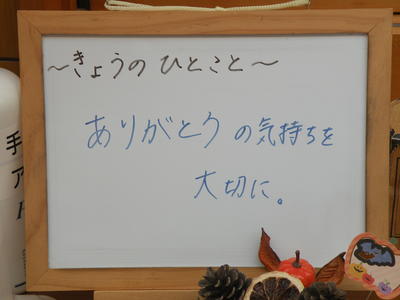 ～きょうの ひとこと～
ありがとうの気持ちを
大切に。
手
ア